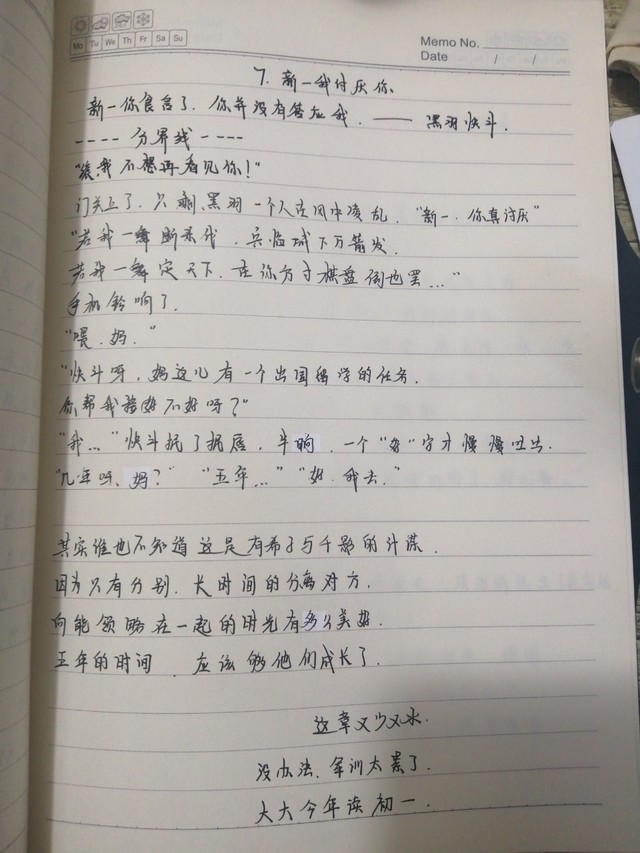 Mo Tu We Th Fr Sa Su
Memo No.
Date / /
7. 新一我讨厌你
新一你食言了,你并没有答应我. —— 黑羽快斗.
---- 分界线 ----
"滚,我不想再看见你!"
门关上了,只剩黑羽一个人在风中凌乱. "新一,你真讨厌"
"若我一舞断杀伐,兵临城下万箭发.
若我一舞定天下,在你方寸棋盘倒也罢..."
手机铃响了.
"喂.妈."
"快斗呀,妈这儿有一个出国留学的任务.
你帮我接好不好呀?"
"我..."快斗抿了抿唇,半晌,一个"好"字才慢慢吐出.
"几年呀、妈?" "五年..." "好.我去."
其实谁也不知道这是有希子与千影的计谋.
因为只有分别.长时间的分离对方.
向能领略在一起的时光有多么美好.
五年的时间,应该够他们成长了.
这章又少又水.
没办法.军训太累了.
大大今年读初一.